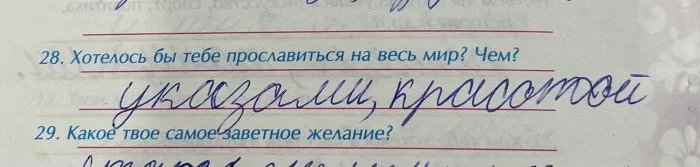 28. Хотелось бы тебе прославиться на весь мир? Чем?
указами, красотой
29. Какое твое самое заветное желание?